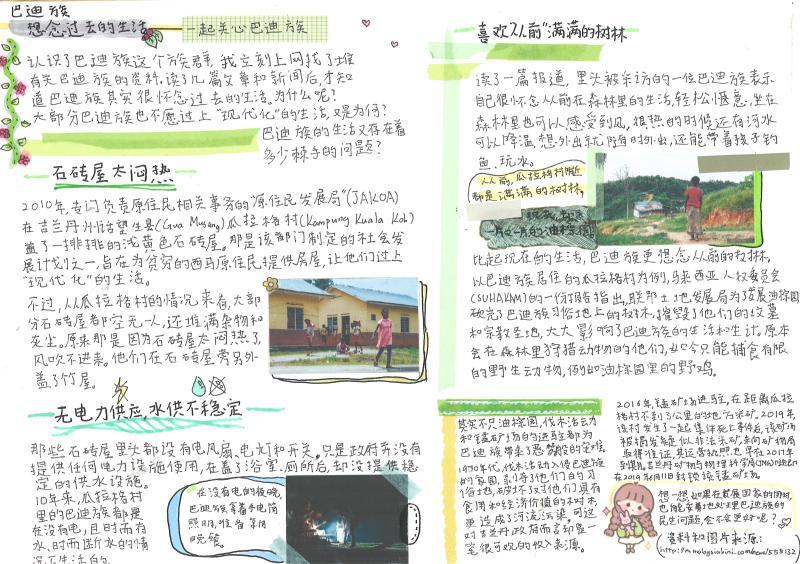 巴迪族
想念过去的生活
一起关心巴迪族
认识了巴迪族这个族群,我立刻上网找了些
有关巴迪族的资料.读了几篇文章和新闻后,才知
道巴迪族其实很怀念过去的生活.为什么呢?
大部分巴迪族也不愿过上"现代化"的生活,又是为何?
巴迪族的生活又存在着
多少棘手的问题?
石砖屋太闷热
2010年,专门负责原住民相关事务的"原住民发展局"(JAKOA)
在吉兰丹州话望生县(Gua Musang)瓜拉格村(Kampung Kuala Koh)
盖了一排排的浅黄色石砖屋,那是该部门制定的社会发
展计划之一,旨在为贫穷的西马原住民提供房屋,让他们过上
"现代化"的生活。
不过,从瓜拉格村的情况来看,大部
分石砖屋都空无一人,还堆满杂物和
灰尘.原来那是因为石砖屋太闷热了,
风吹不进来.他们在石砖屋旁另外
盖了竹屋。
无电力供应,水供不稳定
那些石砖屋里头都没有电风扇、电灯和开关.只是政府并没有
提供任何电力设施使用,在盖了浴室、厕所后,却没提供稳
定的供水设施。
10年来,瓜拉格村
里的巴迪族都是
在没有电,且时而有
水、时而断水的情
况下生活的。
在没有电的夜晚,
巴迪族拿着手电筒
照明,准备享用
晚餐。
喜欢从前"满满的树林
读了一篇报道,里头被采访的一位巴迪族表示
自己很怀念从前在森林里的生活,轻松惬意,坐在
森林里也可以感受到风,很热的时候还有河水
可以降温,想外出就随时外出,还能带着孩子钓
鱼、玩水。
从前,瓜拉格村附近
都是满满的树林,
现在,却是
一片一片的油棕园
比起现在的生活,巴迪族更想念从前的牧林.
以巴迪族居住的瓜拉格村为例,马来西亚人权委员会
(SUHAKAM)的一份报告指出,联邦土地发展局为了发展油棕园
砍完了巴迪族习俗地上的树木,摧毁了他们的坟墓
和宗教圣地,大大影响了巴迪族的生活和生计.原本
会在森林里狩猎动物的他们,如今只能捕食有限
的野生动物,例如油棕园里的野鸡。
其实不只油棕园,伐木活动
和锰矿场的进驻都为
巴迪族带来了恶劣的灾难。
1970年代,伐木活动入侵巴迪族
的家园,剥夺了他们的习
俗地,破坏了对他们具有
食用和经济价值的树木,
更造成了河流污染.可这
对吉兰丹政府而言却是一
笔很可观的收入来源。
2016年,锰矿场进驻,在距离瓜拉
格村不到3公里的地方采矿.2019年,
该村发生了一起集体死亡事件后,该矿场
被揭发疑似非法采矿,未向矿物局
取得准证,其运营执照也早在2017年
到期.吉兰丹矿物与地理科学局(JMG)也随即
在2019年6月11日封锁该锰矿场。
想一想,如果在发展国家的同时,
也能拿着地处理巴迪族的
民生问题,会不会更好呢?
资料和图片来源: